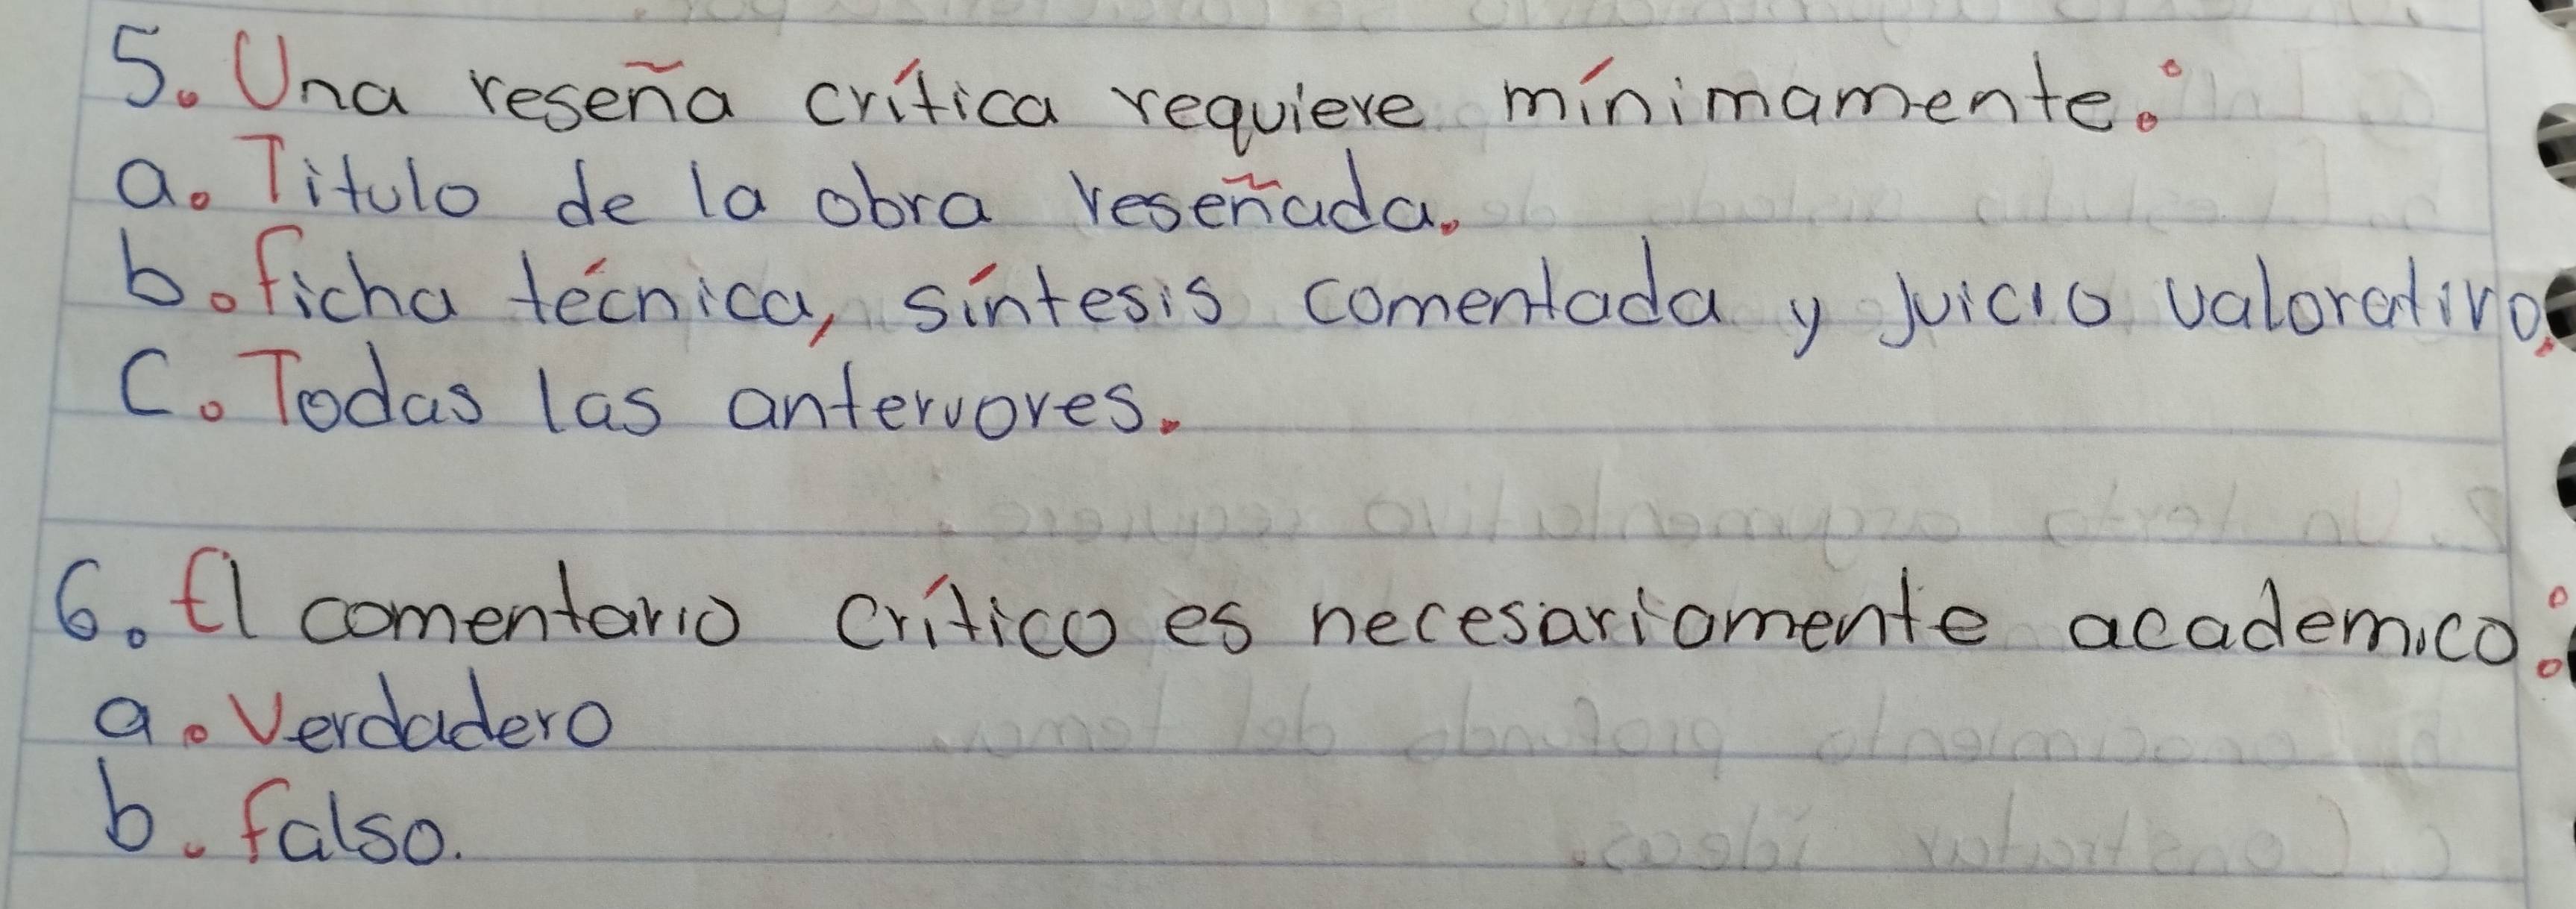 5. Una reseña crítica requiere mínimamente:
a. Titulo de la obra reseñada.
b. ficha técnica, síntesis comentada y juicio valorativo.
C. Todas las anteriores.
6. El comentario crítico es necesariamente academico:
a. Verdadero
b. falso.